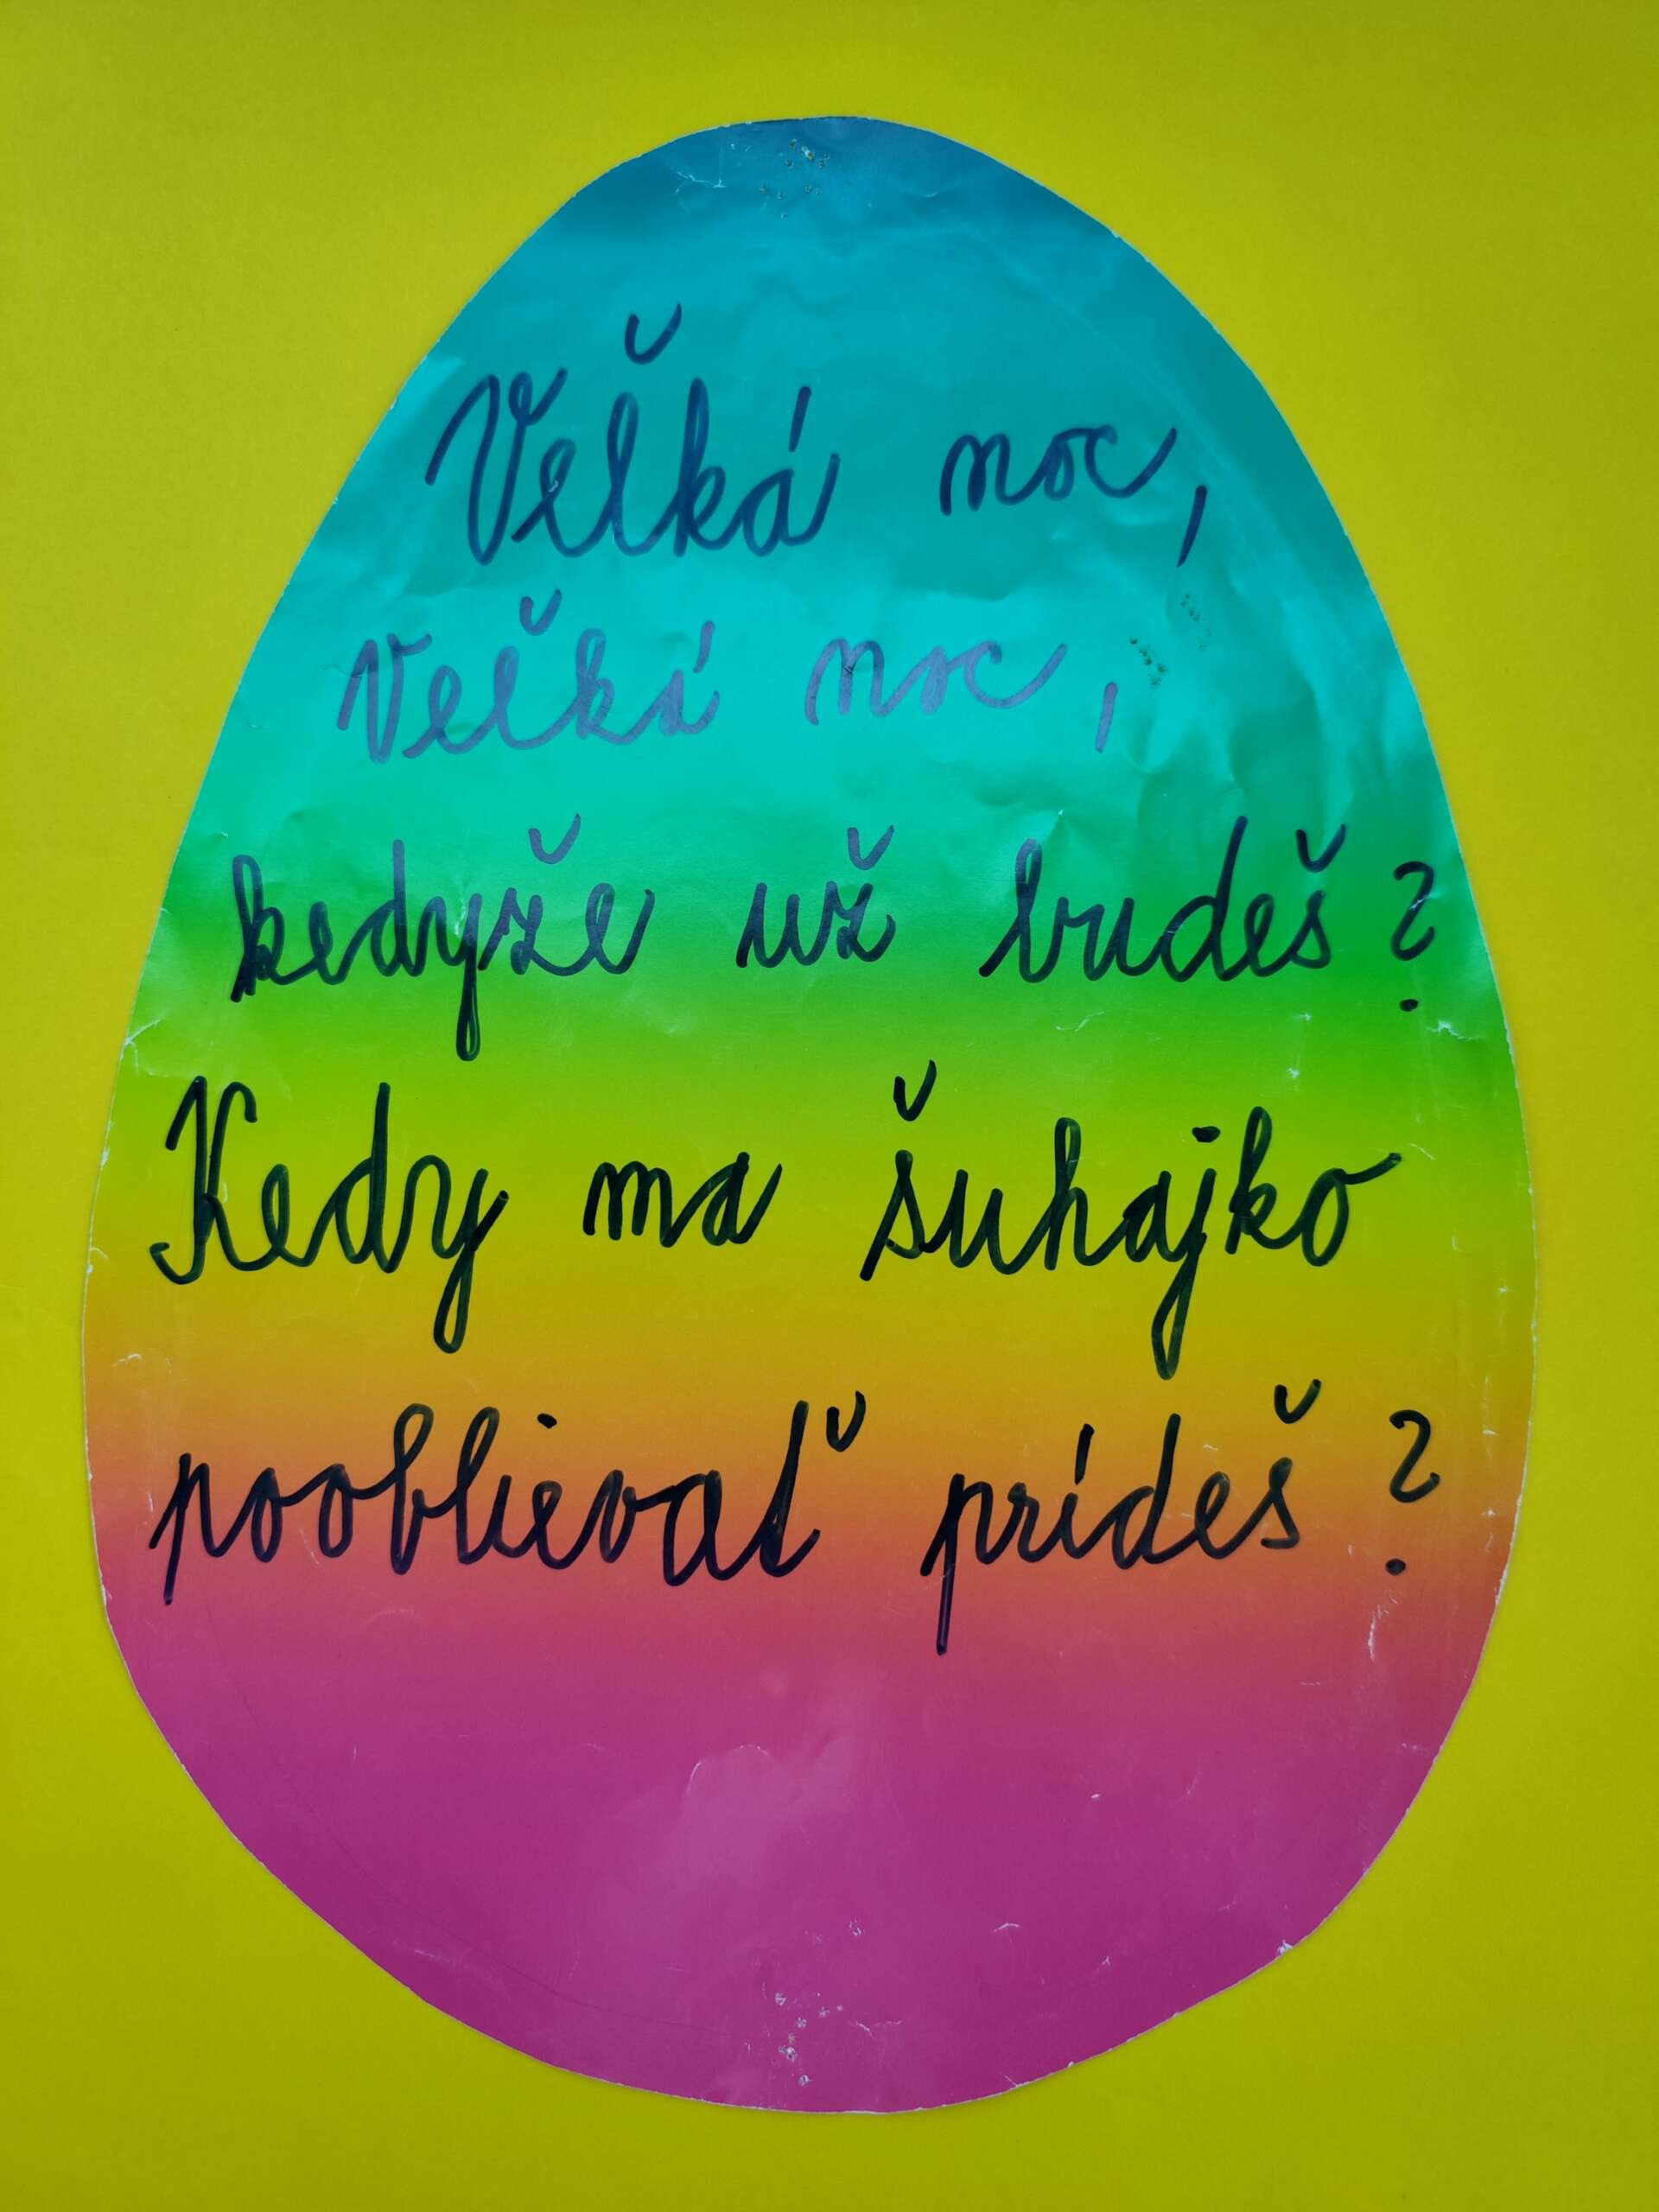 Veľká noc,
Veľká noc,
kedyže už budeš?
Kedy ma šuhajko
pooblievať prídeš?